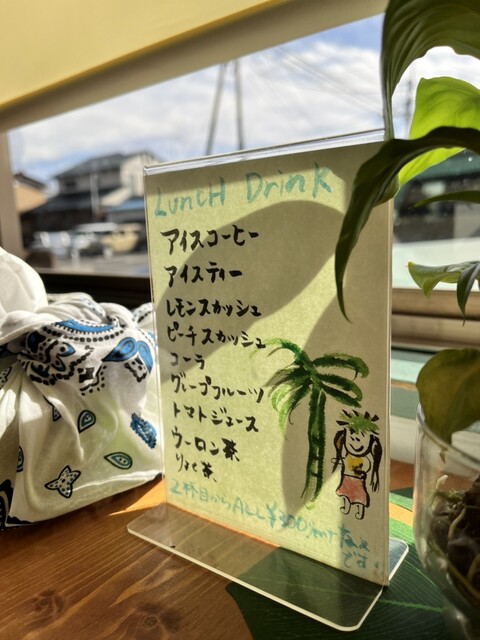 LuncH Drink
アイスコーヒー
アイスティー
レモンスカッシュ
ピーチスカッシュ
コーラ
グレープフルーツ
トマトジュース
ウーロン茶
りょく茶
2杯目からALL ¥300
です。